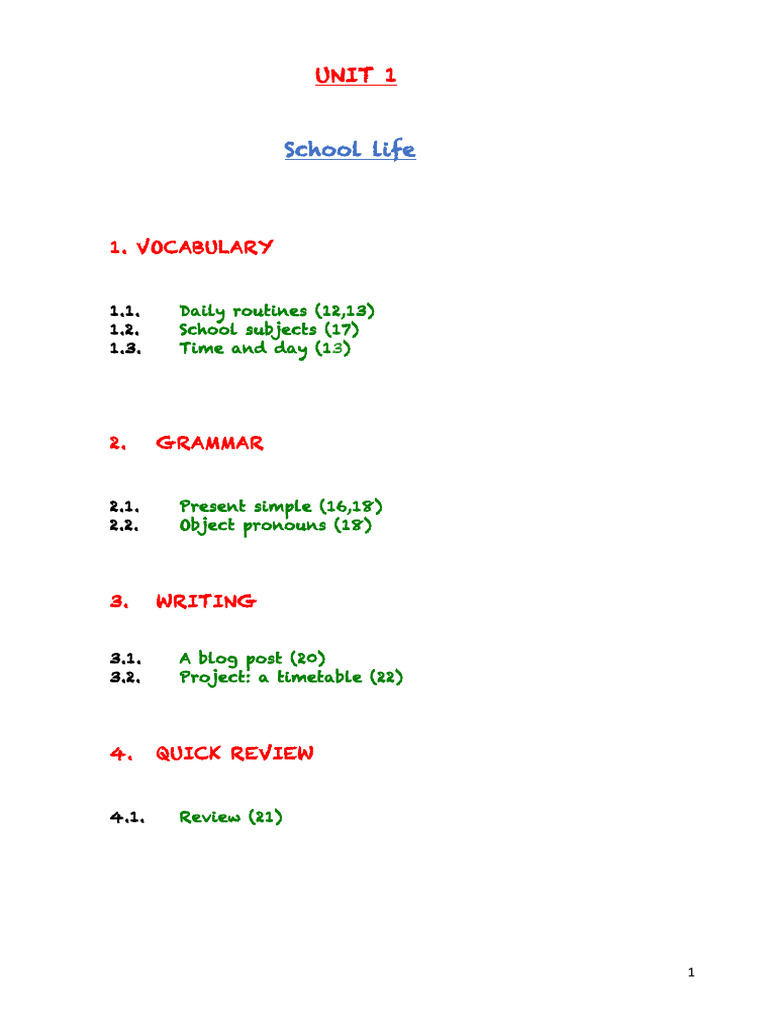 UNIT 1
School life
1. VOCABULARY
1.1. Daily routines (12,13)
1.2. School subjects (17)
1.3. Time and day (13)
2. GRAMMAR
2.1. Present simple (16,18)
2.2. Object pronouns (18)
3. WRITING
3.1. A blog post (20)
3.2. Project: a timetable (22)
4. QUICK REVIEW
4.1. Review (21)
1